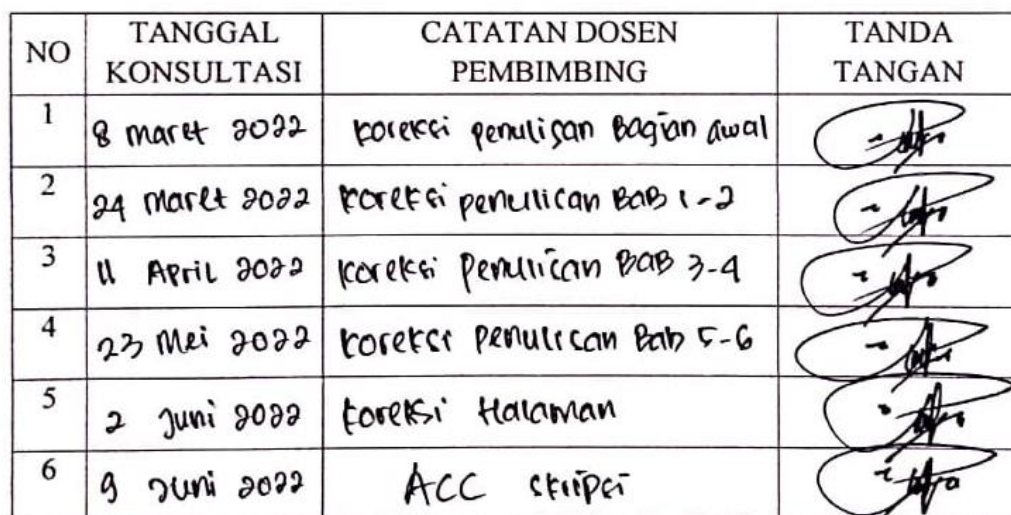 NO TANGGAL KONSULTASI CATATAN DOSEN PEMBIMBING TANDA TANGAN
1 8 maret 2022 koreksi penulisan Bagian awal
2 24 maret 2022 koreksi penulisan BAB 1-2
3 11 April 2022 koreksi penulisan BAB 3-4
4 23 Mei 2022 koreksi penulisan Bab 5-6
5 2 Juni 2022 koreksi Halaman
6 9 Juni 2022 ACC skripsi